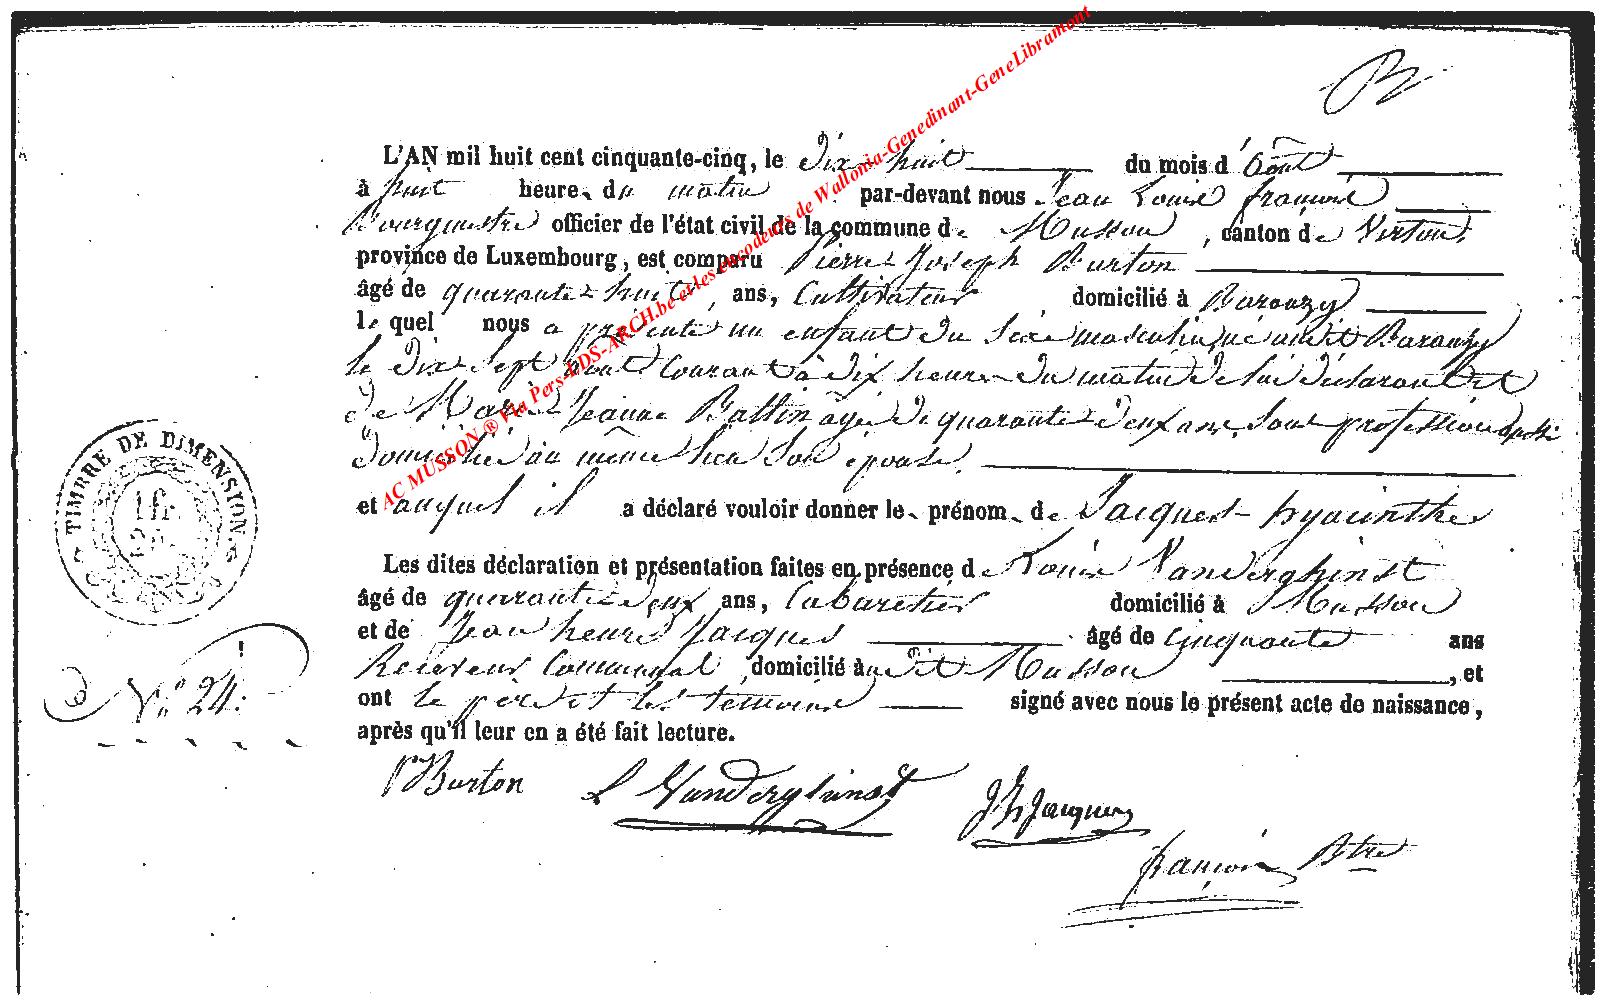 B
L'AN mil huit cent cinquante-cinq, le dix huit du mois d'Août
à huit heure du matin par-devant nous Jean Louis François
Bourgmestre officier de l'état civil de la commune de Musson, canton de Virton,
province de Luxembourg, est comparu Pierre Joseph Burton
âgé de quarante huit ans, Cultivateur domicilié à Baranzy
le quel nous a présenté un enfant du sexe masculin né audit Baranzy
le dix Sept août Courant à dix heures du matin de lui déclarant et
de Marie Jeanne Battin âgée de quarante deux ans, sans profession aussi
domiciliée au même lieu son épouse.
et auquel il a déclaré vouloir donner le prénom de Jacques hyacinthe
Les dites déclaration et présentation faites en présence de Louis Vanderghinst
âgé de quarante deux ans, Cabaretier domicilié à Musson
et de Jean henri Jacques âgé de Cinquante ans
Receveur Communal, domicilié audit Musson, et
ont le père et les témoins signé avec nous le présent acte de naissance,
après qu'il leur en a été fait lecture.
P Burton L Vanderghinst J h Jacques
françois Btre
TIMBRE DE DIMENSION.
1 fr.
N° 24.
AC MUSSON ® Via Pers-EDS-ARCH.be et les encodeurs de Wallonia-Genedinant-GeneLibramont